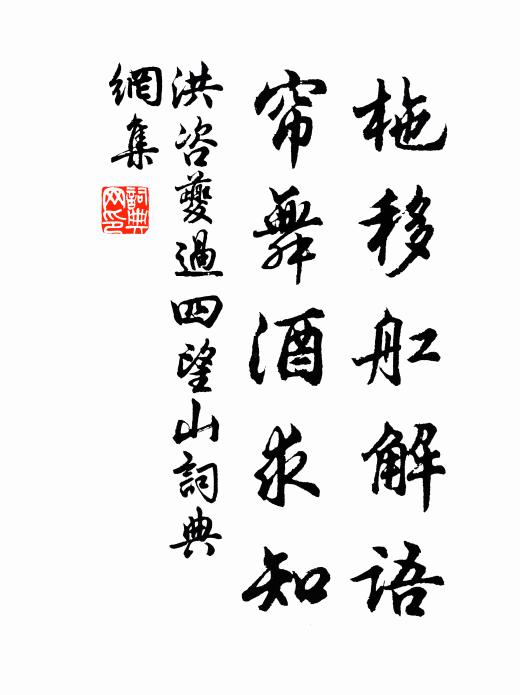 柂移舡解語
帘舞酒求知
洪咨夔過四望山詞典
網集
詞典
网印